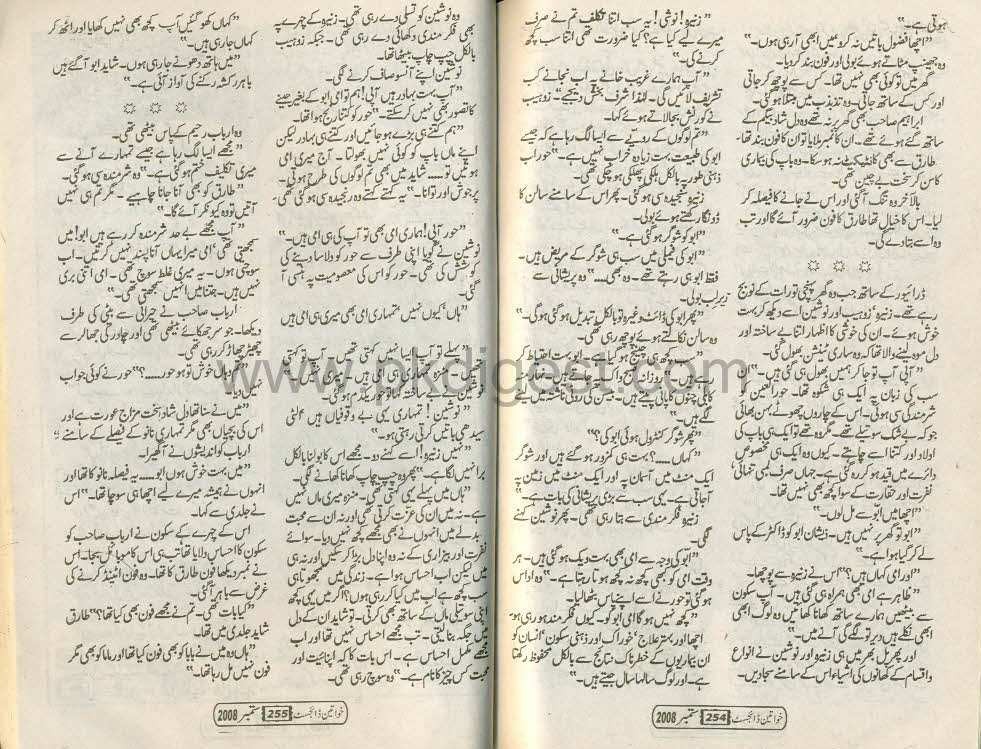 ہوتی ہے۔"
"اچھا فضول باتیں نہ کرو میں ابھی آ رہی ہوں۔"
وہ جھینپ مٹاتے ہوئے بولی اور فون بند کر دیا۔
گھر میں تو کوئی بھی نہیں تھا۔ کس سے پوچھ کر جاتی
اور کس کے ساتھ جاتی۔ وہ تذبذب میں مبتلا ہو گئی۔
ابراہیم صاحب بھی گھر پر نہ تھے وہ دل شاد بیگم کے
ساتھ گئے ہوئے تھے۔ ان کا نمبر ملایا تو ان کا فون بند تھا۔
طارق سے بھی کانٹیکٹ نہ ہو سکا۔ وہ باپ کی بیماری
کا سن کر سخت بے چین تھی۔
بالآخر وہ تنگ آ گئی اور اس نے جانے کا فیصلہ کر
لیا۔ اس کا خیال تھا طارق کا فون ضرور آئے گا اور تب
وہ اسے بتا دے گی۔
ڈرائیور کے ساتھ جب وہ گھر پہنچی تو رات کے نو بج
رہے تھے۔ زنیرہ، زوہیب اور نوشین اسے دیکھ کر بہت
خوش ہوئے۔ ان کی خوشی کا اظہار اتنا بے ساختہ اور
دل موہ لینے والا تھا کہ وہ ساری ٹینشن بھول گئی۔
"آپی آپ تو جا کر ہمیں بھول ہی گئی ہیں۔" ان
سب کی زبان پہ ایک ہی شکوہ تھا۔ حور العین کو
شرمندگی سی ہوئی۔ اس کے چاروں چھوٹے بہن بھائی
جو کہ بے شک سوتیلے تھے۔ مگر وہ تھے تو ایک ہی باپ کی
اولاد اور کتنا اسے چاہتے۔ کیوں وہ ایک ہی مخصوص
دائرے میں قید ہو کر رہ گئی ہے۔ جہاں صرف یہی تنہائی،
نفرت اور حقارت کے سوا کچھ بھی نہیں تھا۔
"اچھا میں ابو سے مل لوں۔"
"ابو تو گھر پر نہیں ہیں۔ ذیشان ابو کو ڈاکٹر کے پاس
لے کر گیا ہوا ہے۔"
"اور امی کہاں ہیں؟" اس نے زنیرہ سے پوچھا۔
"ظاہر ہے امی بھی ہمراہ ہی گئی ہیں۔ آپ سکون
سے بیٹھیں ہمارے ساتھ کھانا کھائیں وہ لوگ ابھی
ابھی نکلے ہیں دیر تو لگے گی آنے میں۔"
اور پھر پل بھر میں ہی زنیرہ اور نوشین نے انواع
و اقسام کے کھانوں کی اشیاء اس کے سامنے سجا دیں۔
"زنیرہ! نوشی! یہ سب اتنا تکلف تم نے صرف
میرے لیے کیا ہے؟ کیا ضرورت تھی اتنا سب کچھ
کرنے کی۔"
"آپ ہمارے غریب خانے پہ اب نجانے کب
تشریف لائیں گی۔ لہٰذا شرف بخش دیجیے۔" زوہیب
نے کورنش بجا لاتے ہوئے کہا۔
"تم لوگوں کے رویے سے ایسا لگ رہا ہے کہ جیسے
ابو کی طبیعت بہت زیادہ خراب نہیں ہے۔" حور اب
ذہنی طور پہ بالکل ہلکی پھلکی ہو چکی تھی۔
زنیرہ سنجیدہ ہو گئی۔ پھر اس کے سامنے سالن کا
ڈونگا رکھتے ہوئے بولی۔
"ابو کو شوگر ہو گئی ہے۔"
"ابو کی فیملی میں سب ہی شوگر کے مریض ہیں۔
فقط ابو ہی رہتے تھے۔ وہ بھی......" وہ پریشانی سے
زیرلب بولی۔
"پھر ابو کی ڈائٹ وغیرہ تو بالکل تبدیل ہو گئی ہو گی۔"
وہ سالن نکالتے ہوئے پوچھ رہی تھی۔
"سب کچھ ہی چینج ہو گیا ہے۔ ابو بہت احتیاط کر
رہے ہیں۔ روزانہ صبح واک کرنے جاتے ہیں۔ نہار منہ
کالی چنوں کا پانی پیتے ہیں۔ بیسن کی روٹی ناشتے میں لینے
لگے ہیں۔"
"پھر شوگر کنٹرول ہوئی ابو کی؟"
"کہاں.....؟ بہت ہی کمزور ہو گئے ہیں اور شوگر
ایک منٹ میں آسمان پہ اور ایک منٹ میں زمین پہ
آ جاتی ہے۔ یہی سب سے بڑی پریشانی کی بات ہے۔"
زنیرہ فکر مندی سے بتا رہی تھی۔ پھر نوشین کہنے
لگی۔
"ابو کی وجہ سے امی بھی بہت ویک ہو گئی ہیں۔ ہر
وقت امی کو بھی کچھ نہ کچھ ہوتا رہتا ہے۔" وہ اداس
ہو گئی تو حور نے اسے اپنے پاس بٹھا لیا۔
"کچھ نہیں ہو گا امی ابو کو۔ کیوں فکر مند ہو رہی ہو۔
اچھا اور بہتر علاج، خوراک اور ذہنی سکون، انسان کو
ان بیماریوں کے خطرناک نتائج سے بالکل محفوظ رکھتا
ہے۔ اور لوگ سالہا سال جیتے ہیں۔"
خواتین ڈائجسٹ 254 ستمبر 2008
وہ نوشین کو تسلی دے رہی تھی۔ زنیرہ کے چہرے پہ
بھی فکر مندی دکھائی دے رہی تھی۔ جبکہ زوہیب
بالکل چپ چاپ بیٹھا تھا۔
نوشین اپنے آنسو صاف کرنے لگی۔
"آپ بہت بہادر ہیں آپی! ہم تو امی ابو کے بغیر جینے
کا تصور بھی نہیں کر سکتے۔" حور کو کتنا رنج ہوا تھا۔
"ہم کتنے ہی بڑے ہو جائیں اور کتنے ہی بہادر لیکن
اپنے ماں باپ کو کوئی نہیں بھولتا۔ آج میری امی
ہوتیں تو..... شاید میں بھی تم لوگوں کی طرح ہوتی۔
پرجوش اور توانا۔" یہ کہتے کہتے وہ رنجیدہ سی ہو گئی تھی۔
"حور آپی! ہماری امی بھی تو آپ کی ہی امی ہیں۔"
نوشین نے گویا اپنی طرف سے حور کو دلاسا دینے کی
کوشش کی تھی۔ حور کو اس کی معصومیت پہ ہنسی آ
گئی۔
"ہاں، کیوں نہیں، تمہاری امی بھی میری ہی امی ہیں
"پہلے تو آپ ایسا نہیں کہتی تھیں۔ آپ تو کہتی
نوشین نے بے ساختہ کہا تو حور یکدم ہو گئی۔
"نوشین! تمہاری یہی بے وقوفیاں ہیں، الٹی
سیدھی باتیں کرتی رہتی ہو۔"
"نہیں زنیرہ! اسے کہنے دو۔ مجھے اس کا بولنا بالکل
برا نہیں لگا ہے۔" پھر وہ چپ چاپ کھانا کھانے لگی۔
"ہاں میں پہلے یہی کہتی تھی۔ منزہ میری ماں نہیں
ہے۔ نہ میں ان کی عزت کرتی تھی اور نہ ان سے محبت
بدلے میں انہوں نے بھی مجھے کچھ نہیں دیا۔ سوائے
نفرت اور بیزاری کے نہ وہ اپنا دل بڑا کر سکیں اور نہ ہی
میں لیکن اب احساس ہوا ہے۔ زندگی میں سمجھوتا ہی
سب کچھ ہے اب میں کیا کر رہی ہوں؟ اگر میں یہی کچھ
اپنی سوتیلی ماں کے ساتھ بھی کرتی۔ تو شاید ان کے دل
میں جگہ بنا لیتی۔ تب مجھے احساس نہیں تھا اور اب
مجھے مکمل احساس ہے۔ اس بات کا کہ اپنائیت اور
محبت کس چیز کا نام ہے۔" وہ سوچ رہی تھی۔
"کہاں کھو گئیں آپ کچھ بھی نہیں کھایا اور اٹھ کر
کہاں جا رہی ہیں۔"
"میں ہاتھ دھونے جا رہی ہوں۔ شاید ابو آ گئے ہیں
باہر رکشہ رکنے کی آواز آئی ہے۔"
وہ ارباب رحیم کے پاس بیٹھی تھی۔
"مجھے ایسا لگ رہا ہے جیسے تمہارے آنے سے
میری تکلیف ختم ہو گئی ہے۔" وہ شرمندہ سی ہو گئی۔
"طارق کو بھی آنا چاہیے۔ مگر تم ہی نہیں
آتیں تو وہ کیونکر آئے گا۔"
"آپ مجھے بے حد شرمندہ کر رہے ہیں ابو! میں
سمجھتی تھی، امی میرا یہاں آنا پسند نہیں کرتیں۔ اب
سوچتی ہوں۔ یہ میری غلط سوچ تھی۔ امی اتنی بری
نہیں ہیں۔ جتنا میں انہیں سمجھتی تھی۔"
ارباب صاحب نے حیرانی سے بیٹی کی طرف
دیکھا۔ جو سر جھکائے بیٹھی تھی اور چادر کی جھالر سے
چھیڑ چھاڑ کر رہی تھی۔
"تم وہاں خوش تو ہو حور.....؟" حور نے کوئی جواب
نہیں دیا۔
"میں نے سنا تھا دل شاد سخت مزاج عورت ہے اور
اس کی بچیاں بھی مگر تمہاری نانو کے فیصلے کے سامنے"
ارباب کو اندیشوں نے آ گھیرا۔
"میں بہت خوش ہوں ابو..... یہ فیصلہ نانو کا تھا اور
انہوں نے ہمیشہ میرے لیے اچھا ہی سوچا تھا۔" اس
نے جلدی سے کہا۔
اس کے چہرے کے سکون نے ارباب صاحب کو
سکون کا احساس دلایا تھا تب ہی اس کا موبائل بجا تھا۔ اس
نے نمبر دیکھا فون طارق کا تھا۔ وہ فون اٹینڈ کرنے کی
غرض سے باہر آ گئی۔
"کیا بات تھی۔ تم نے مجھے فون بھی کیا تھا؟" طارق
شاید جلدی میں تھا۔
"ہاں وہ میں نے بابا کو بھی فون کیا تھا اور ماما کو بھی مگر
فون نہیں مل رہا تھا۔"
خواتین ڈائجسٹ 255 ستمبر 2008
www.pkdigest.com